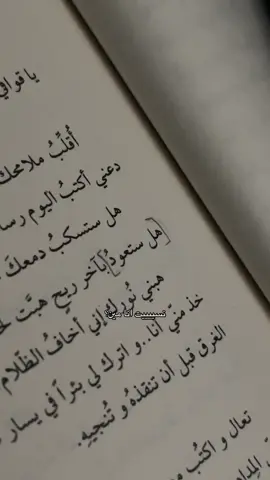 يا قوافي
أُقلِّبُ ملامحك
دعني أكتبُ اليوم رسا
هل ستسكبُ دمعكَ
[هل ستعودُ] بآخر ريحٍ هبَّت
هبني نُورك إني أخافُ الظّلام
خذ منّي أنا.. و اترك لي بئراً في يسار
الغرق قبل أن تنقذهُ و تُنجيهِ.
تعال و اكتُب
المِداد